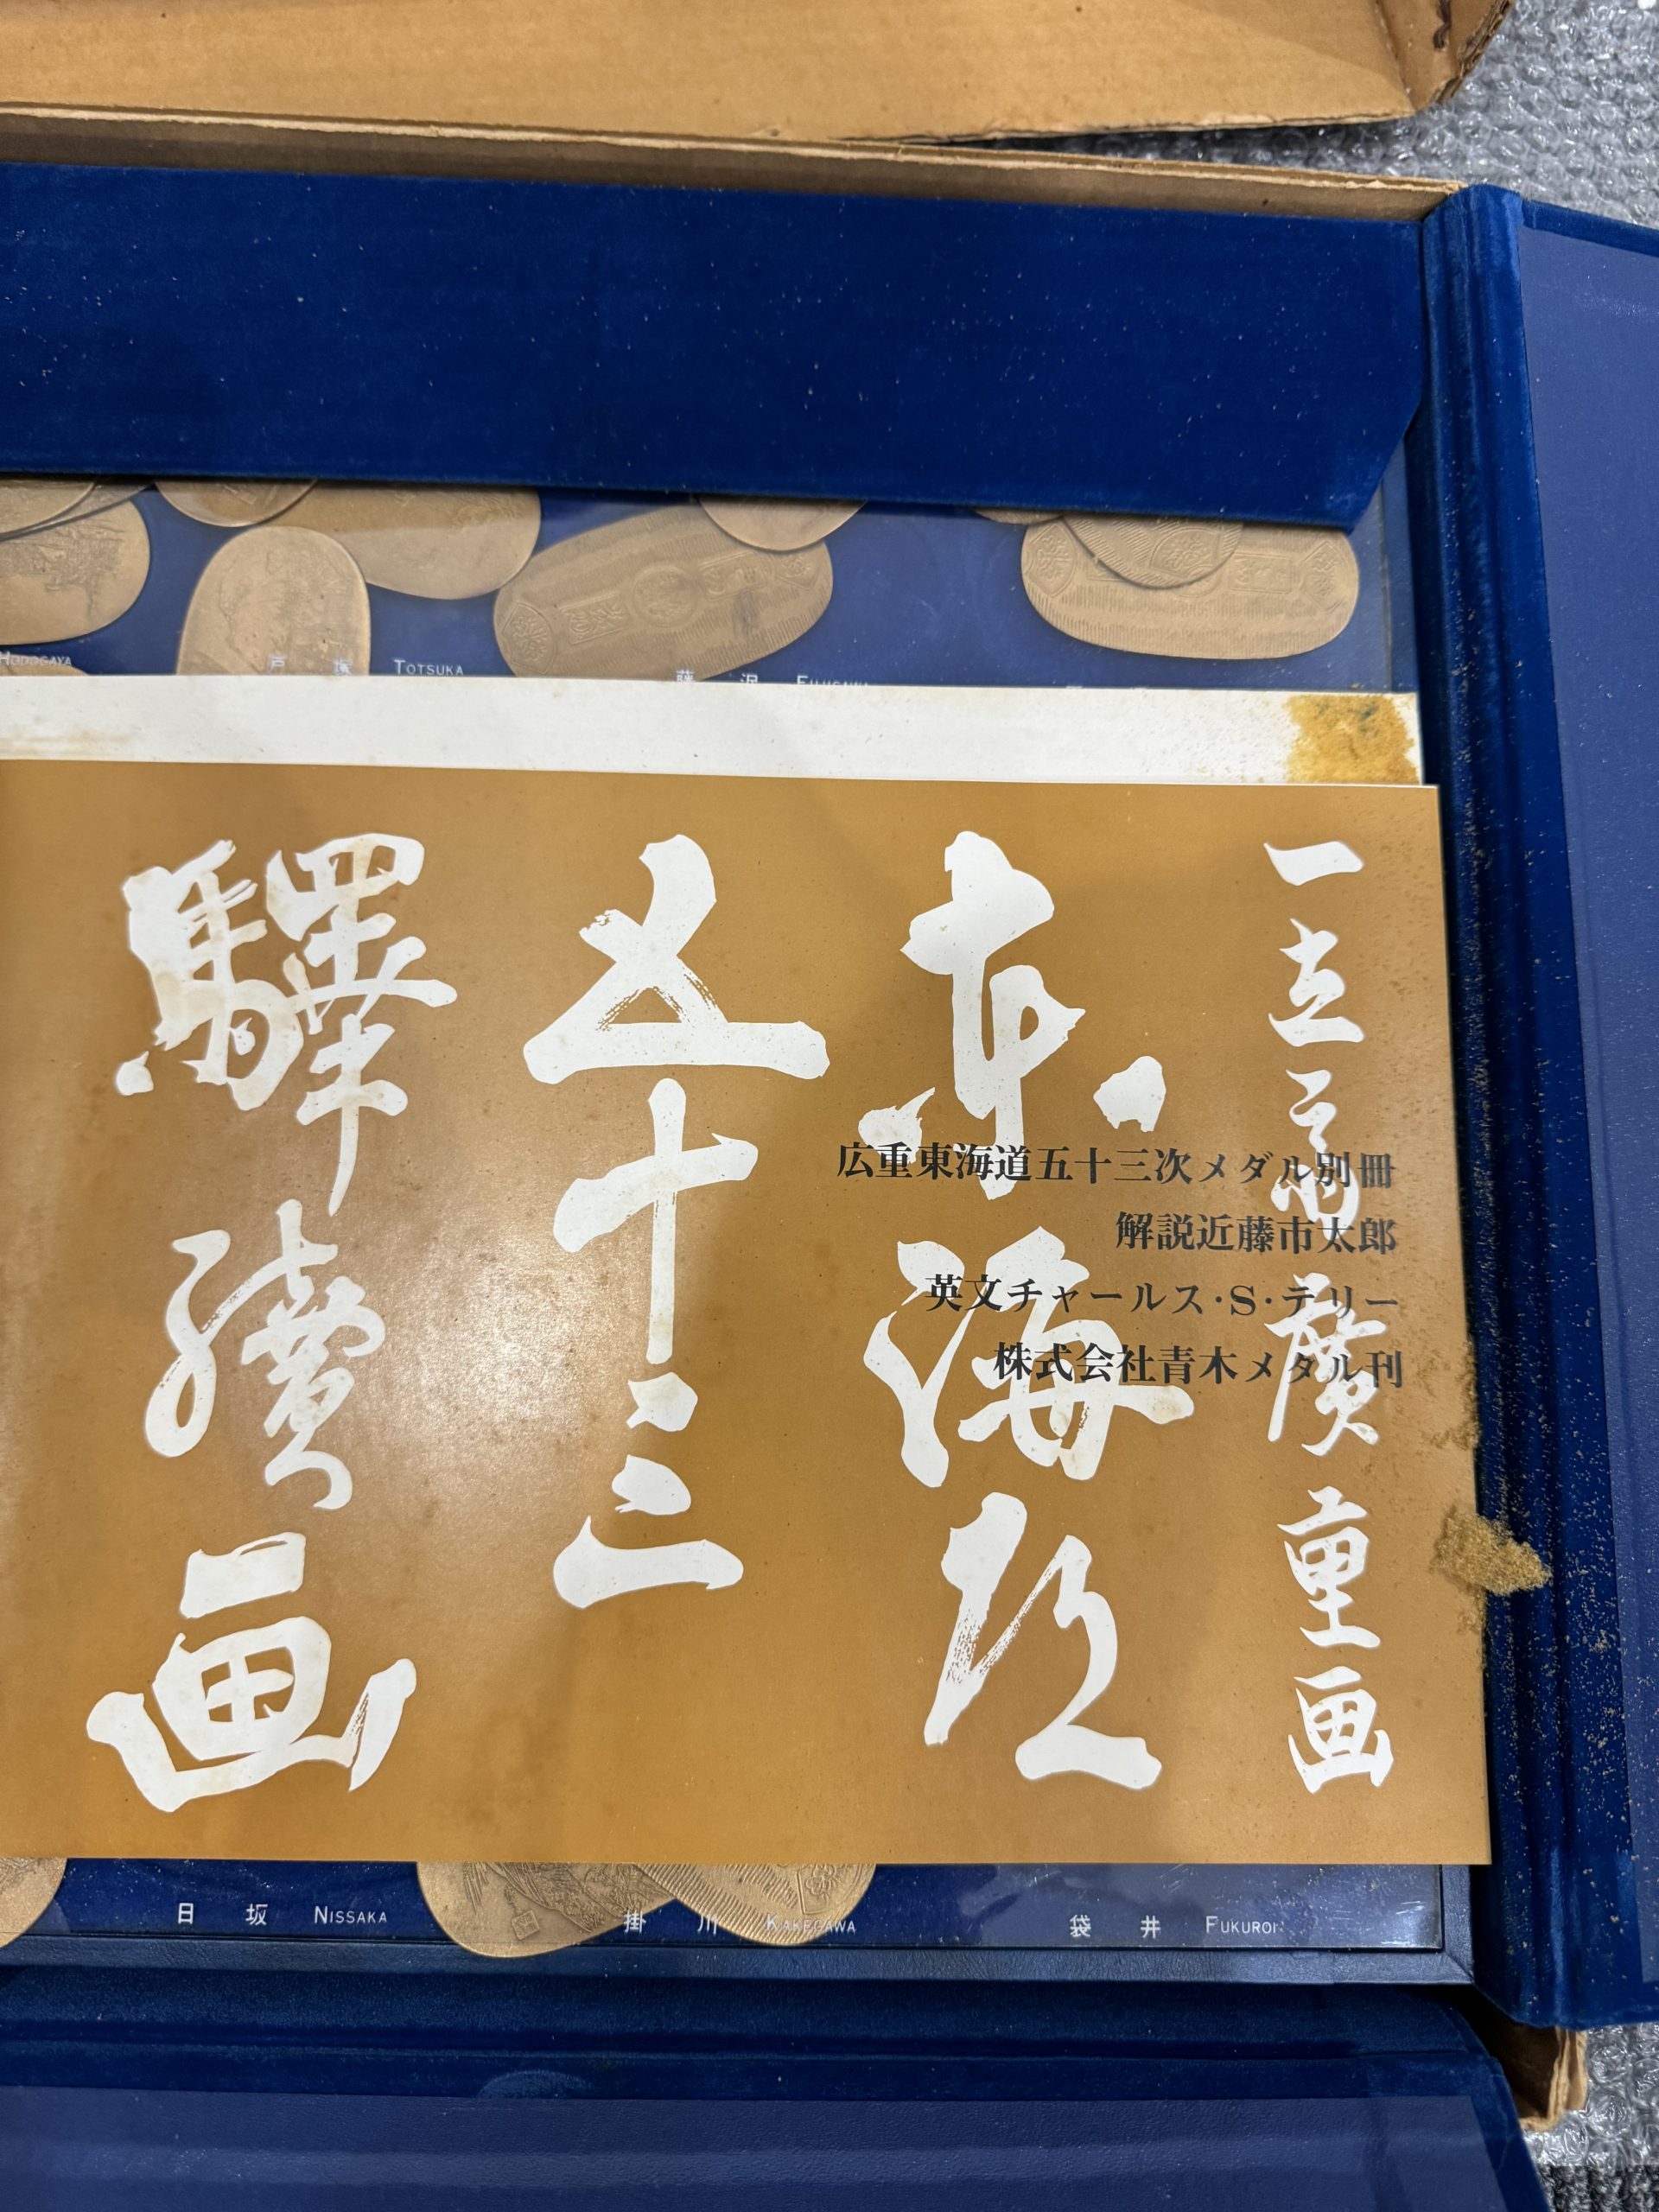 HODOGAYA
戸塚 TOTSUKA
藤沢 FUJISAWA
一立斎廣重画
東海道
五十三
驛續画
広重東海道五十三次メダル別冊
解説近藤市太郎
英文チャールス・S・テリー
株式会社青木メタル刊
日坂 NISSAKA
掛川 KAKEGAWA
袋井 FUKUROI